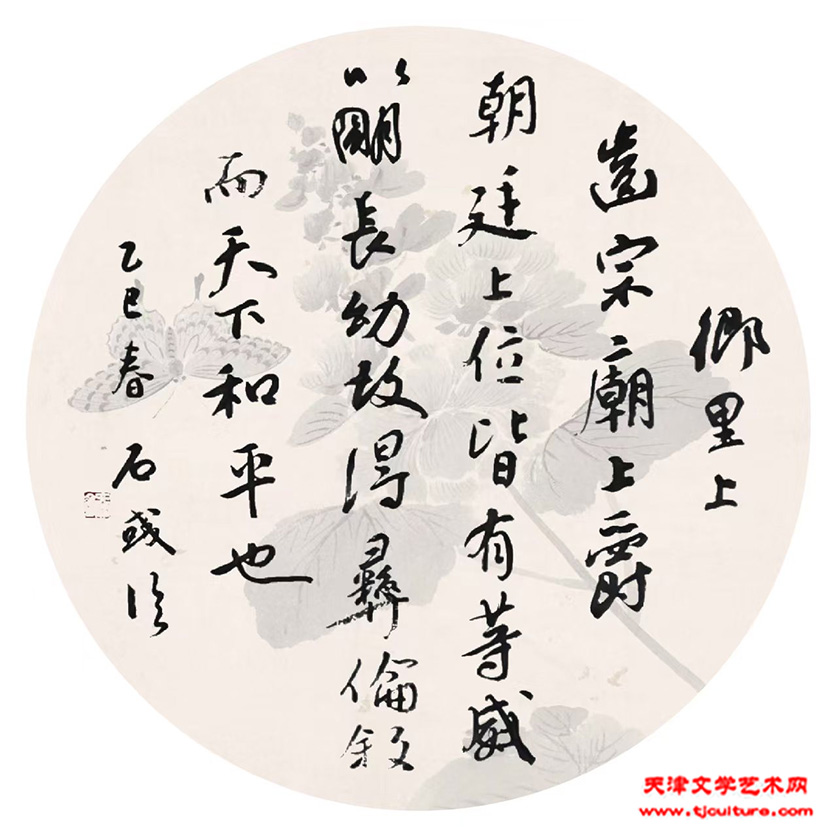 鄉里上
齒宗廟上爵
朝廷上位皆有等威
以明長幼故得彝倫敘
而天下和平也
乙巳春 石
天津文学艺术网
www.tjculture.com